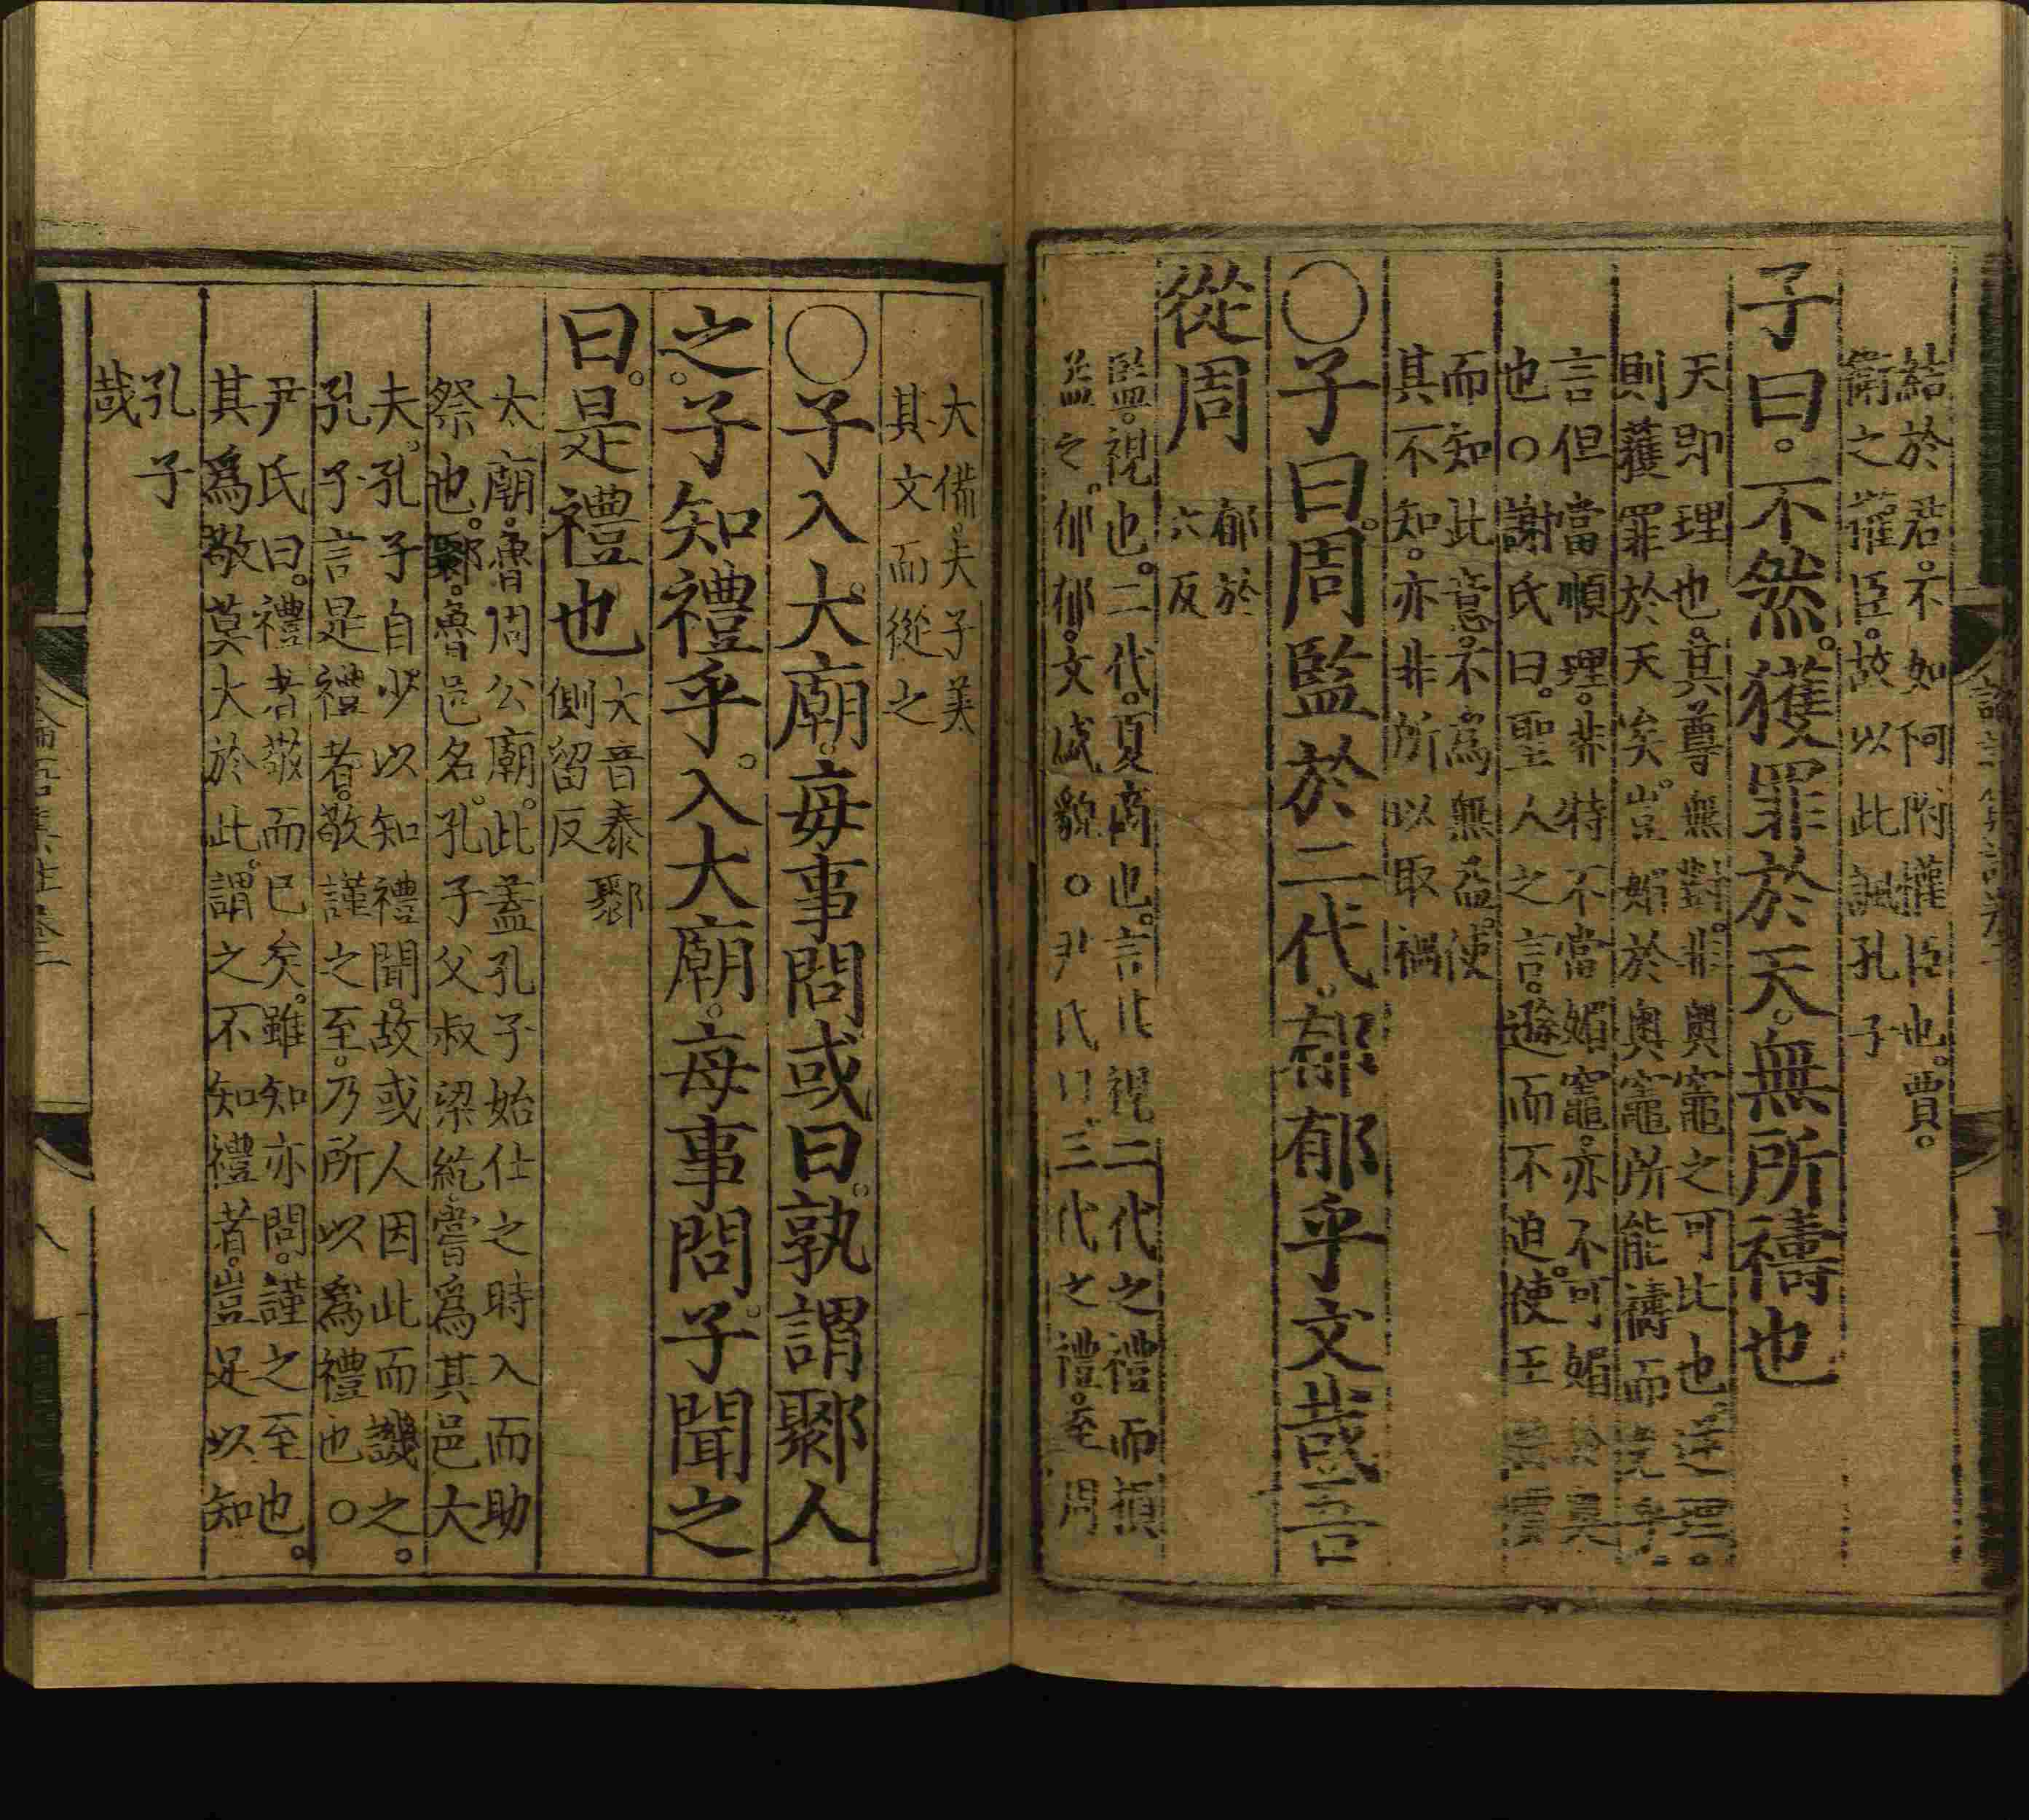 結於君。不如阿附權臣也。賈。
衛之權臣。故以此諷孔子
子曰。不然。獲罪於天。無所禱也
天即理也。其尊無對。非奧竈之可比也。逆理。
則獲罪於天矣。豈媚於奧竈所能禱而免乎。
言但當順理。非特不當媚竈。亦不可媚於奧
也○謝氏曰。聖人之言。遜而不迫。使王孫賈
而知此意。不爲無益。使
其不知。亦非所以取禍
○子曰。周監於二代。郁郁乎文哉吾
從周
郁於
六反
監。視也。二代。夏商也。言其視二代之禮而損
益之。郁郁。文盛貌○尹氏曰。三代之禮。至周
大備。夫子美
其文而從之
○子入大廟。每事問或曰。孰謂鄹人
之。子知禮乎。入大廟。每事問。子聞之
曰。是禮也
大音泰 鄹
側留反
太廟。魯周公廟。此蓋孔子始仕之時入而助
祭也。鄹。魯邑名。孔子父叔梁紇。嘗爲其邑大
夫。孔子自少以知禮聞。故或人因此而譏之。
孔子言是禮者。敬謹之至。乃所以爲禮也○
尹氏曰。禮者敬而已矣。雖知亦問。謹之至也。
其爲敬莫大於此。謂之不知禮者。豈足以知
孔子
哉
論語集注卷二
八